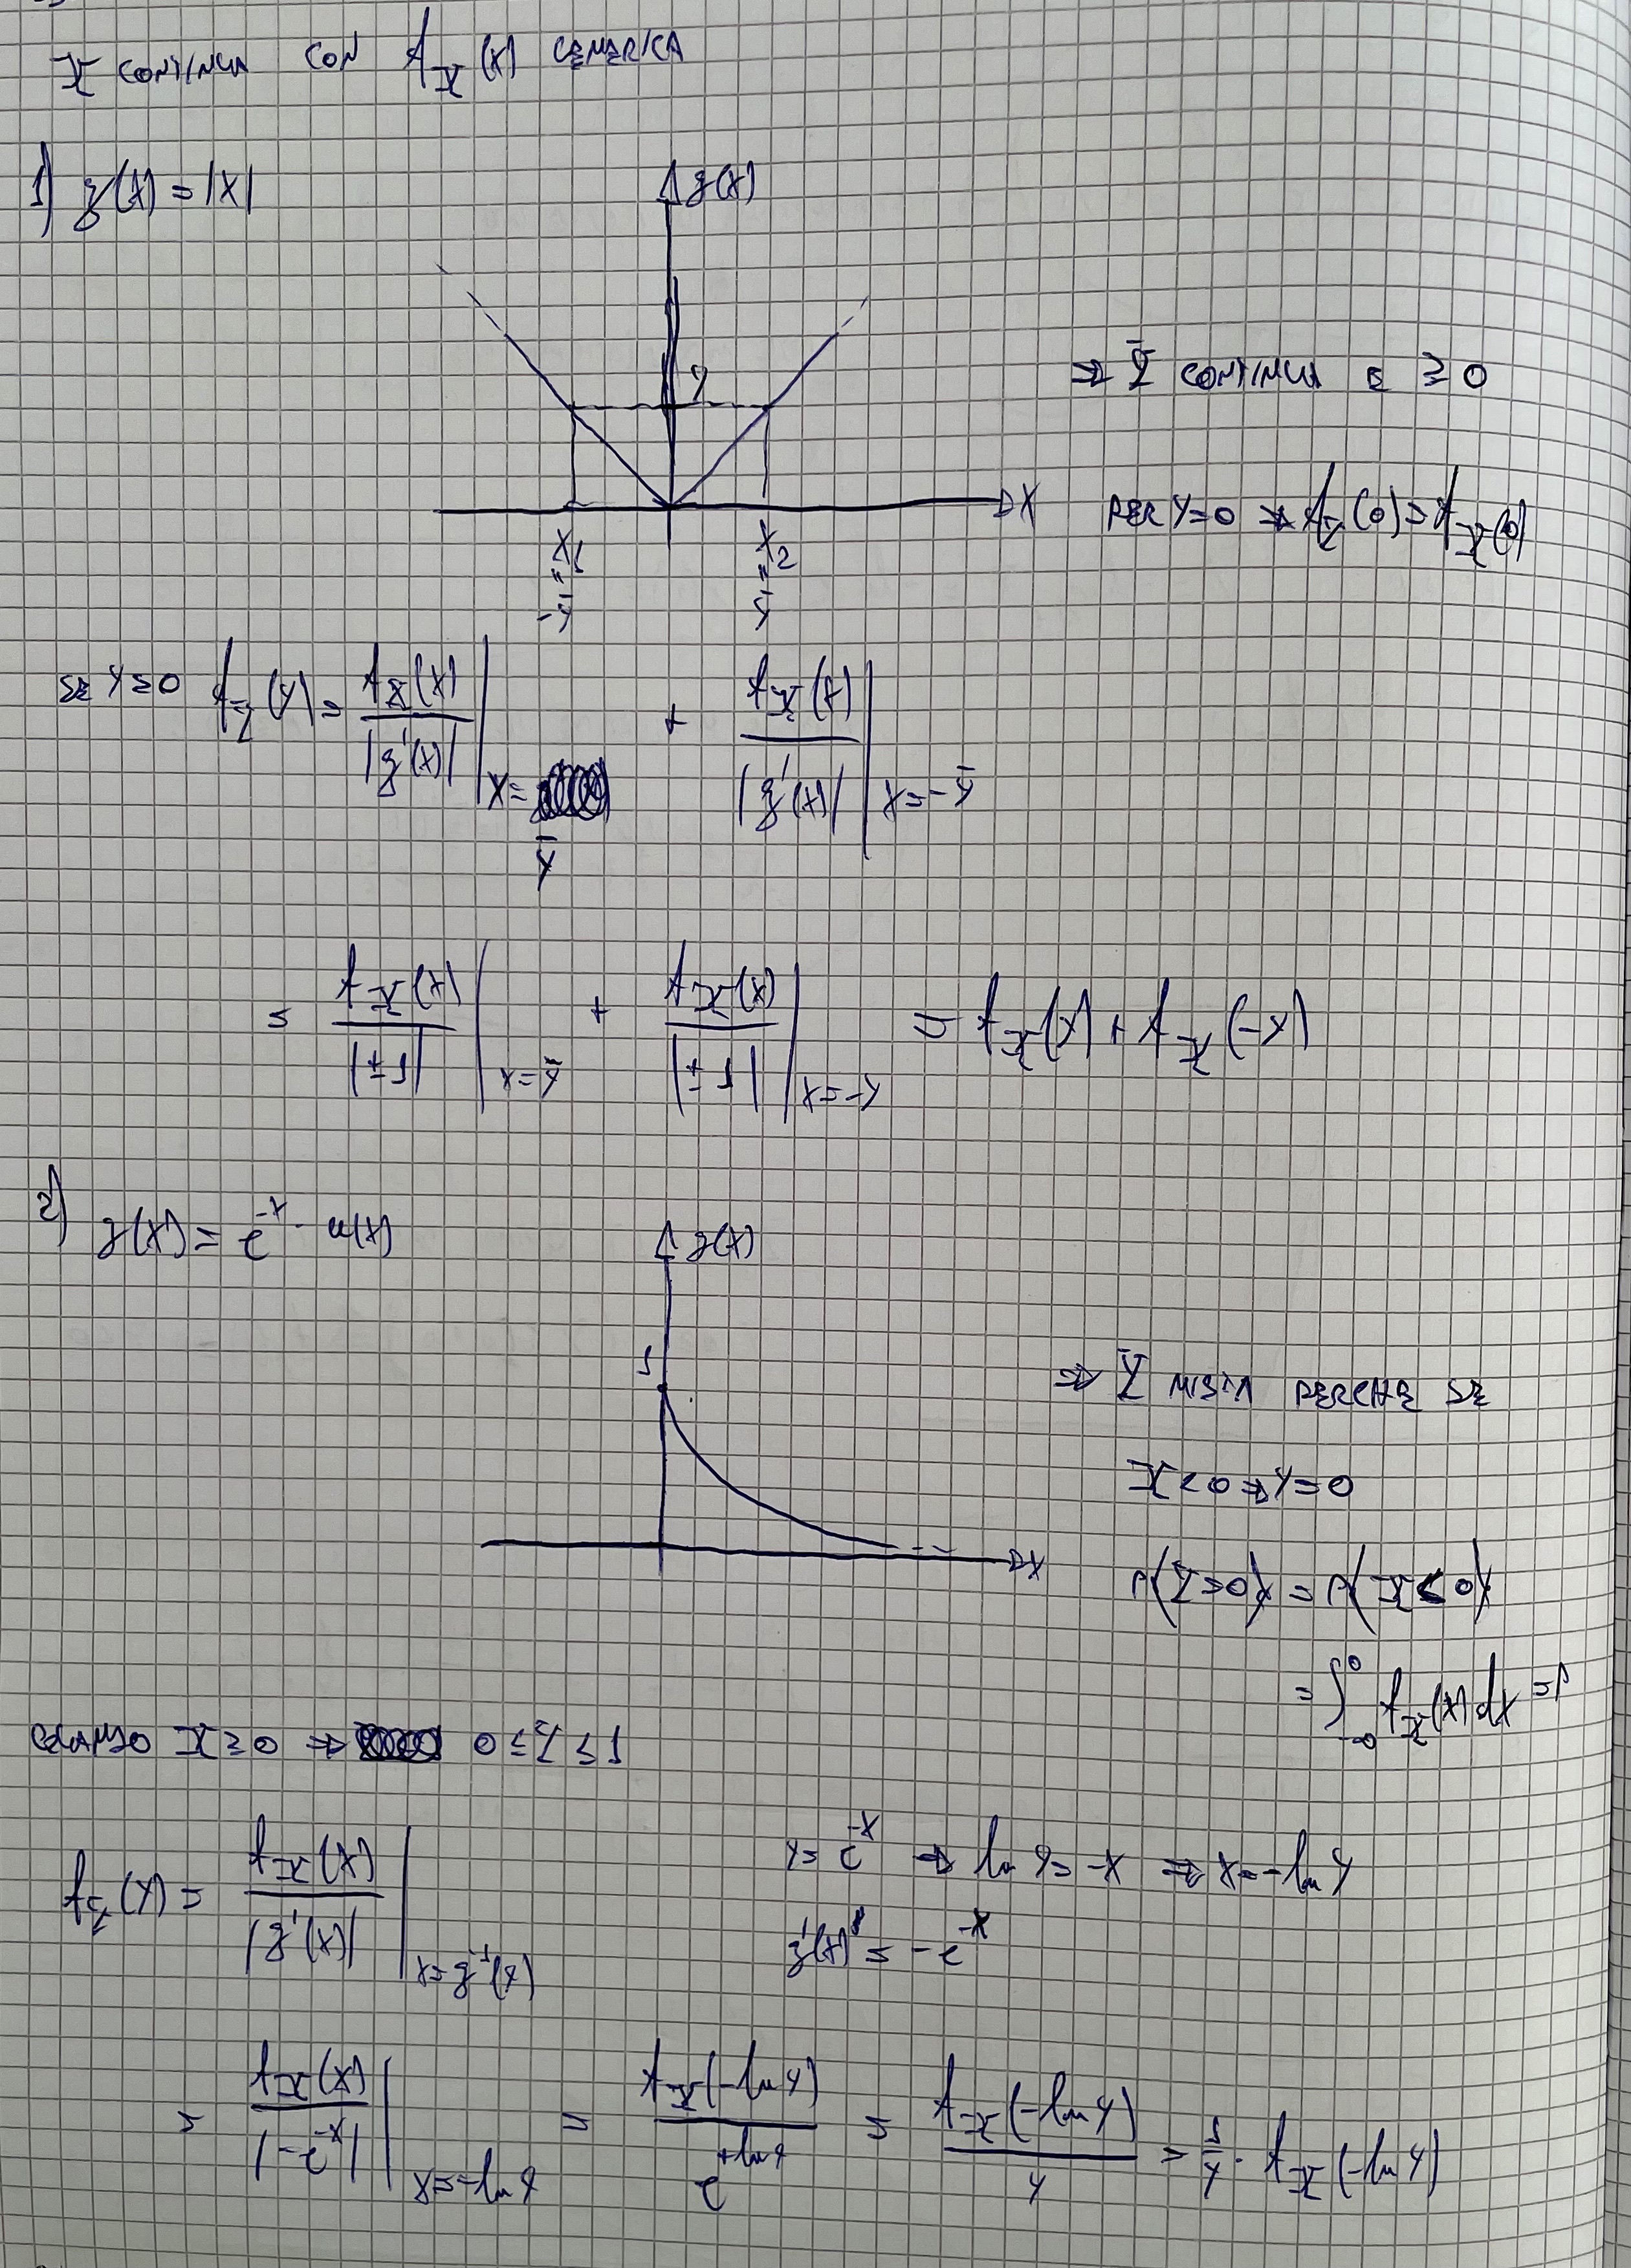 X CONTINUA CON f_X(x) GENERICA
1) g(x) = |x|
g(x)
y
⇒ Y CONTINUA E ≥ 0
x
PER y=0 ⇒ f_Y(0) = f_X(0)
x_1 x_2
= =
-y y
SE y≥0 f_Y(y) = f_X(x)/|g'(x)| |x=y + f_X(x)/|g'(x)| |x=-y
= f_X(x)/|±1| |x=y + f_X(x)/|±1| |x=-y = f_X(y) + f_X(-y)
2) g(x) = e^-x · u(x)
g(x)
1
⇒ Y MISTA PERCHE SE
X<0 ⇒ Y=0
x
P(Y=0) = P(X<0)
= ∫_-∞^0 f_X(x) dx = P
QUANDO X≥0 ⇒ 0≤Y≤1
f_Y(y) = f_X(x)/|g'(x)| |x=g^-1(y)
y = e^-x ⇒ ln y = -x ⇒ x = -ln y
g'(x) = -e^-x
= f_X(x)/|-e^-x| |x=-ln y = f_X(-ln y)/e^+ln y = f_X(-ln y)/y = 1/y · f_X(-ln y)